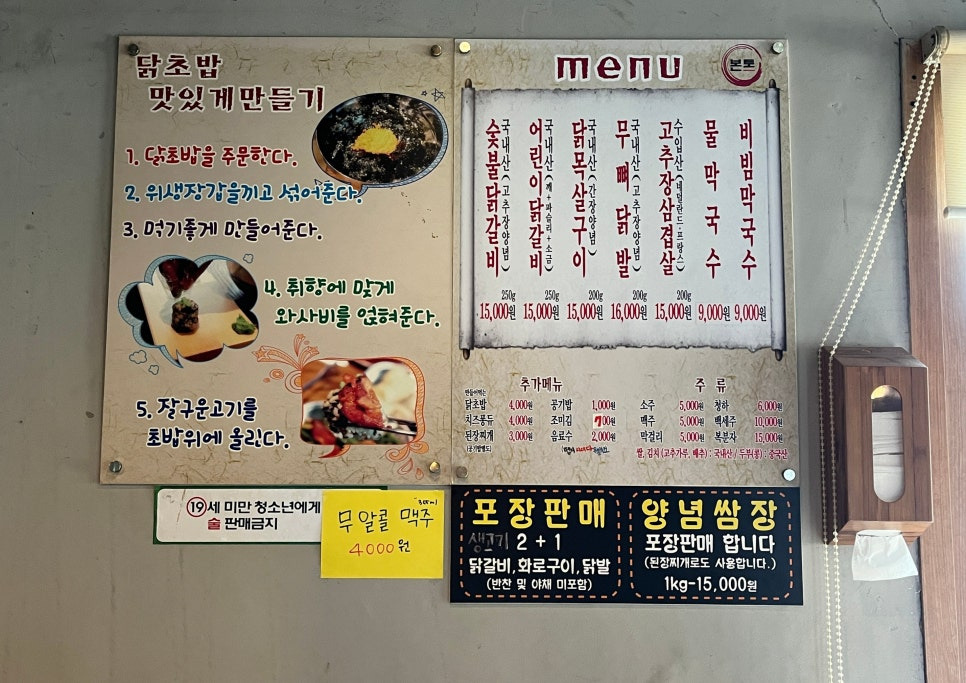 닭초밥
맛있게만들기
1. 닭초밥을 주문한다.
2. 위생장갑을끼고 섞어준다.
3. 먹기좋게 만들어준다.
4. 취향에 맞게
와사비를 얹혀준다.
5. 잘구운고기를
초밥위에 올린다.
menu
본토
숯불닭갈비
국내산(고추장양념)
250g
15,000원
어린이닭갈비
국내산(깨+파슬리+소금)
250g
15,000원
닭목살구이
국내산(간장양념)
200g
15,000원
무뼈닭발
국내산(고추장양념)
200g
16,000원
고추장삼겹살
수입산(네덜란드·프랑스)
200g
15,000원
물막국수
9,000원
비빔막국수
9,000원
추가메뉴
만들어먹는
닭초밥 4,000원 공기밥 1,000원
치즈퐁듀 4,000원 조미김 700원
된장찌개 3,000원 음료수 2,000원
(공기밥별도)
주 류
소주 5,000원 청하 6,000원
맥주 5,000원 백세주 10,000원
막걸리 5,000원 복분자 15,000원
쌀, 김치 (고추가루, 배추) : 국내산 / 두부(콩) : 중국산
19세 미만 청소년에게
술 판매금지
무알콜 맥주
4000원
포장판매
생고기 2 + 1
닭갈비, 화로구이, 닭발
(반찬 및 야채 미포함)
양념쌈장
포장판매 합니다
(된장찌개로도 사용합니다.)
1kg-15,000원